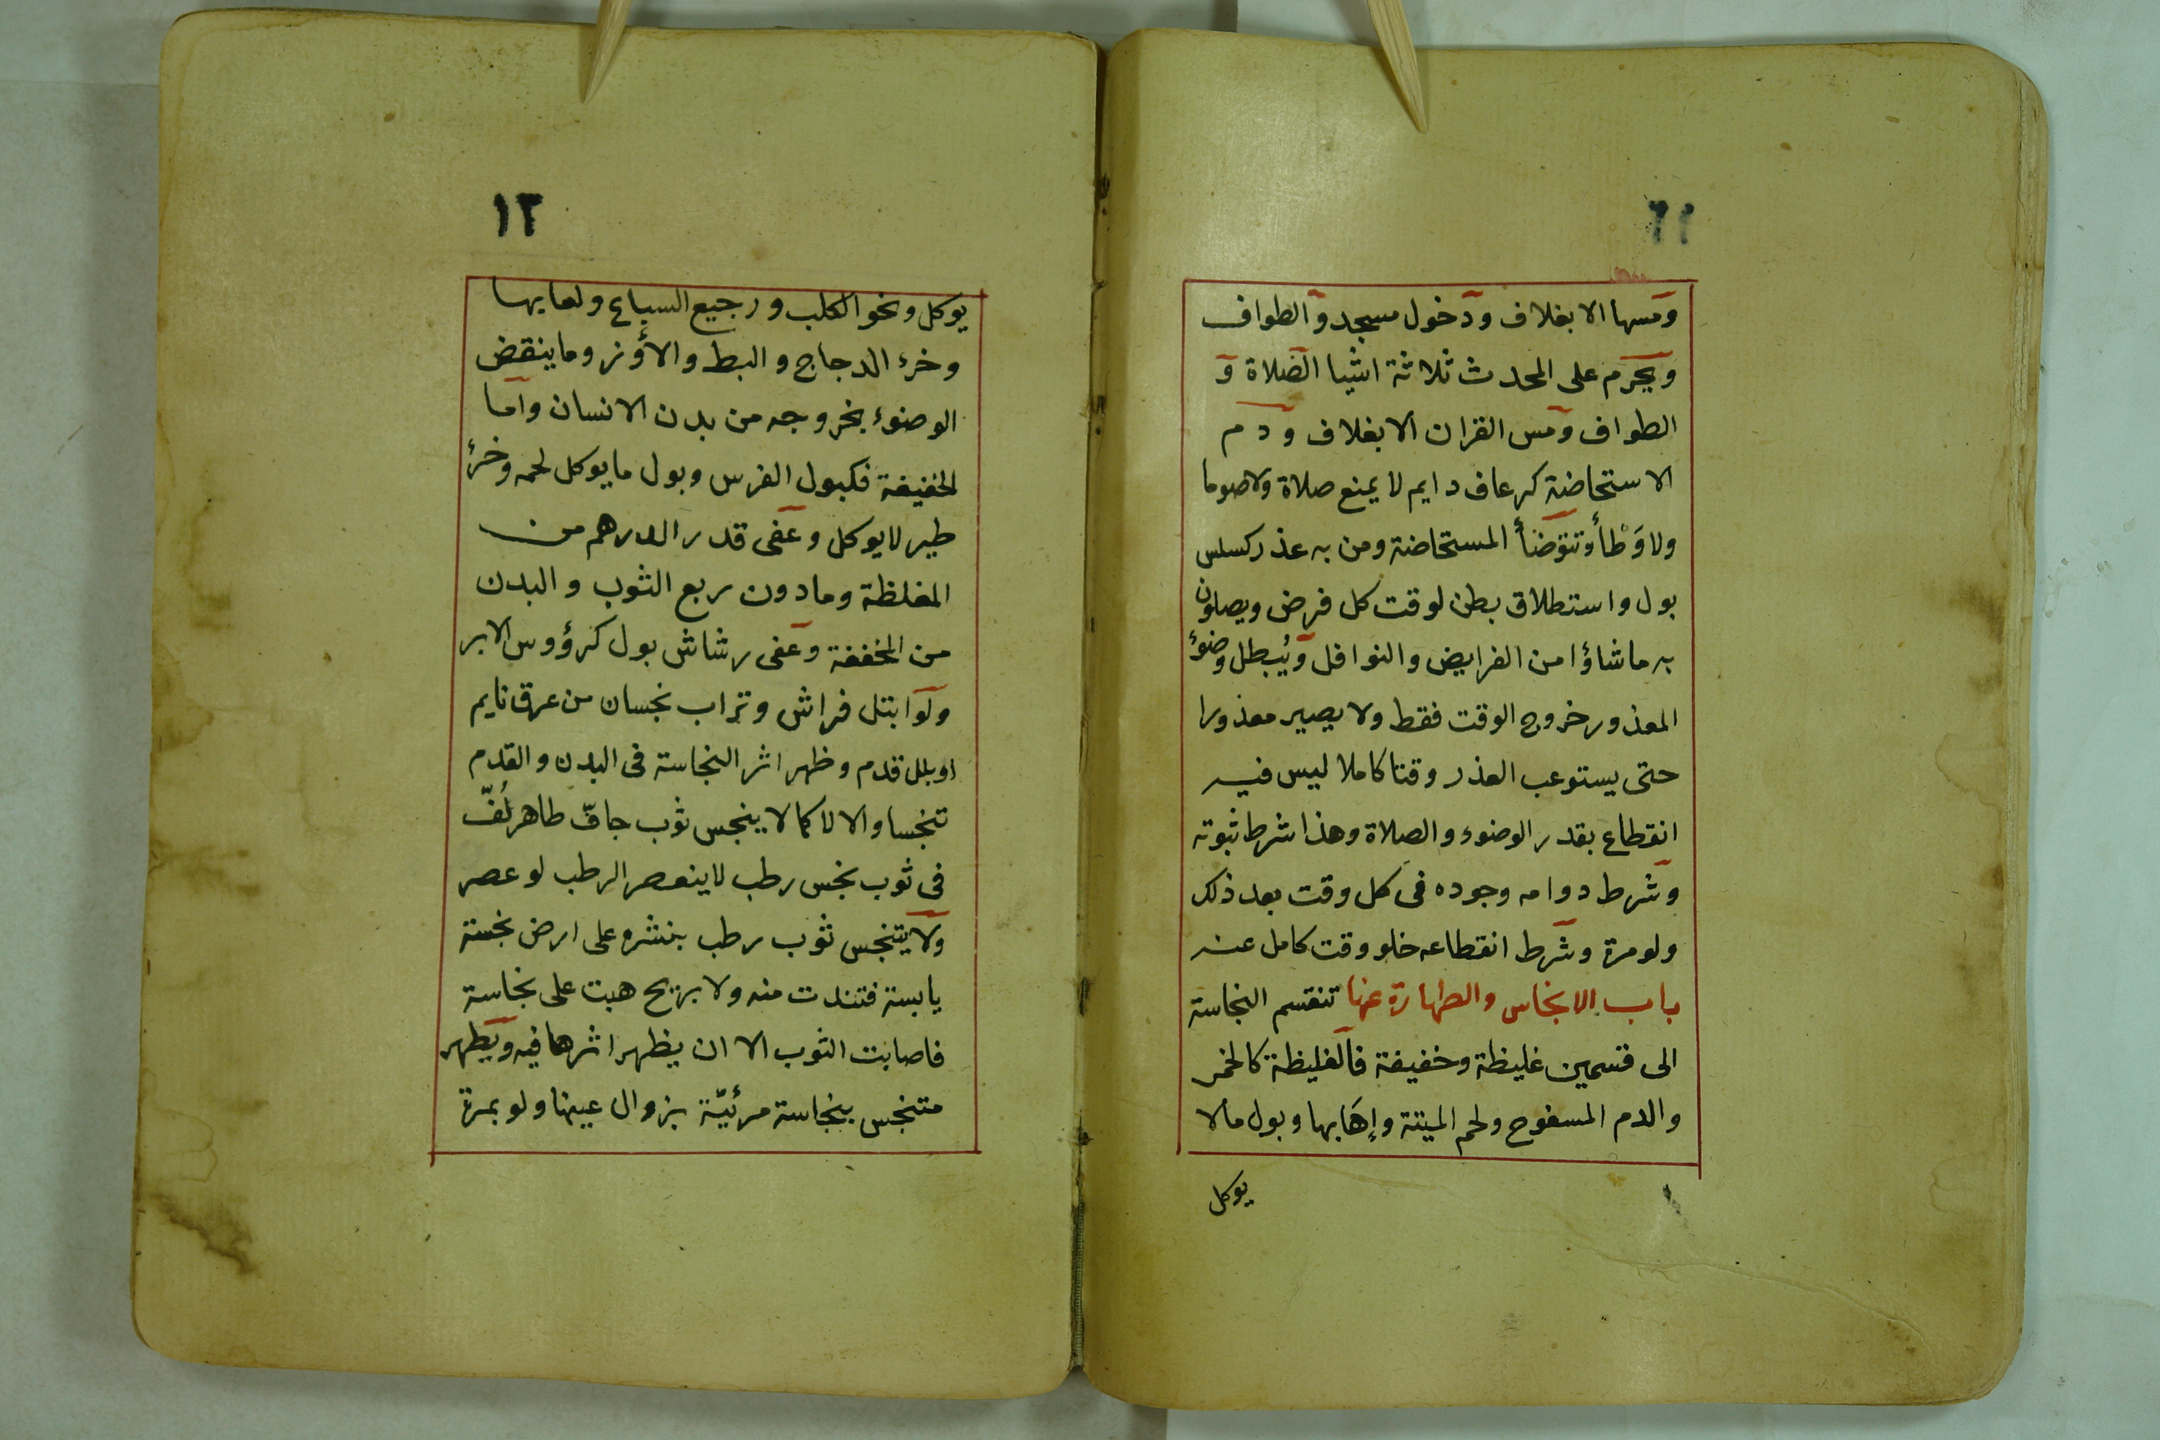 ومسها الا بغلاف ودخول مسجد والطواف
ويحرم على المحدث ثلاثة اشيا الصلاة و
الطواف ومس القران الا بغلاف ودم
الاستحاضة كرعاف دايم لا يمنع صلاة ولا صوما
ولا وَطْأً وتتوضأ المستحاضة ومن به عذر كسلس
بول واستطلاق بطن لوقت كل فرض ويصلون
به ما شاؤا من الفرايض والنوافل ويُبطل وضوءُ
المعذور خروج الوقت فقط ولا يصير معذورا
حتى يستوعب العذر وقتا كاملا ليس فيه
انقطاع بقدر الوضوء والصلاة وهذا شرط ثبوته
وشرط دوامه وجوده فى كل وقت بعد ذلك
ولو مرة وشرط انقطاعه خلو وقت كامل عنه
باب الانجاس والطهارة عنها تنقسم النجاسة
الى قسمين غليظة وخفيفة فالغليظة كالخمر
والدم المسفوح ولحم الميتة وإهَابها وبول مالا
يوكل
١٢
يوكل ونحو الكلب ورجيع السباع ولعابها
وخرء الدجاج والبط والأوز وما ينقض
الوضوء بخروجه من بدن الانسان واما
الخفيفة فكبول الفرس وبول ما يوكل لحمه وخرءُ
طير لا يوكل وعفى قدر الدرهم من
المغلظة وما دون ربع الثوب والبدن
من المخففة وعفى رشاش بول كرؤوس الابر
ولو ابتل فراش وتراب نجسان من عرق نايم
او بلل قدم وظهر اثر النجاسة فى البدن والقدم
تنجسا والا لا كما لا ينجس ثوب جافّ طاهر لُفّ
فى ثوب نجس رطب لا ينعصر الرطب لو عصر
ولا يتنجس ثوب رطب بنشره على ارض نجسة
يابسة فتندت منه ولا بريح هبت على نجاسة
فاصابت الثوب الا ان يظهر اثرها فيه ويطهر
متنجس بنجاسة مرئيّة بزوال عينها ولو بمرة